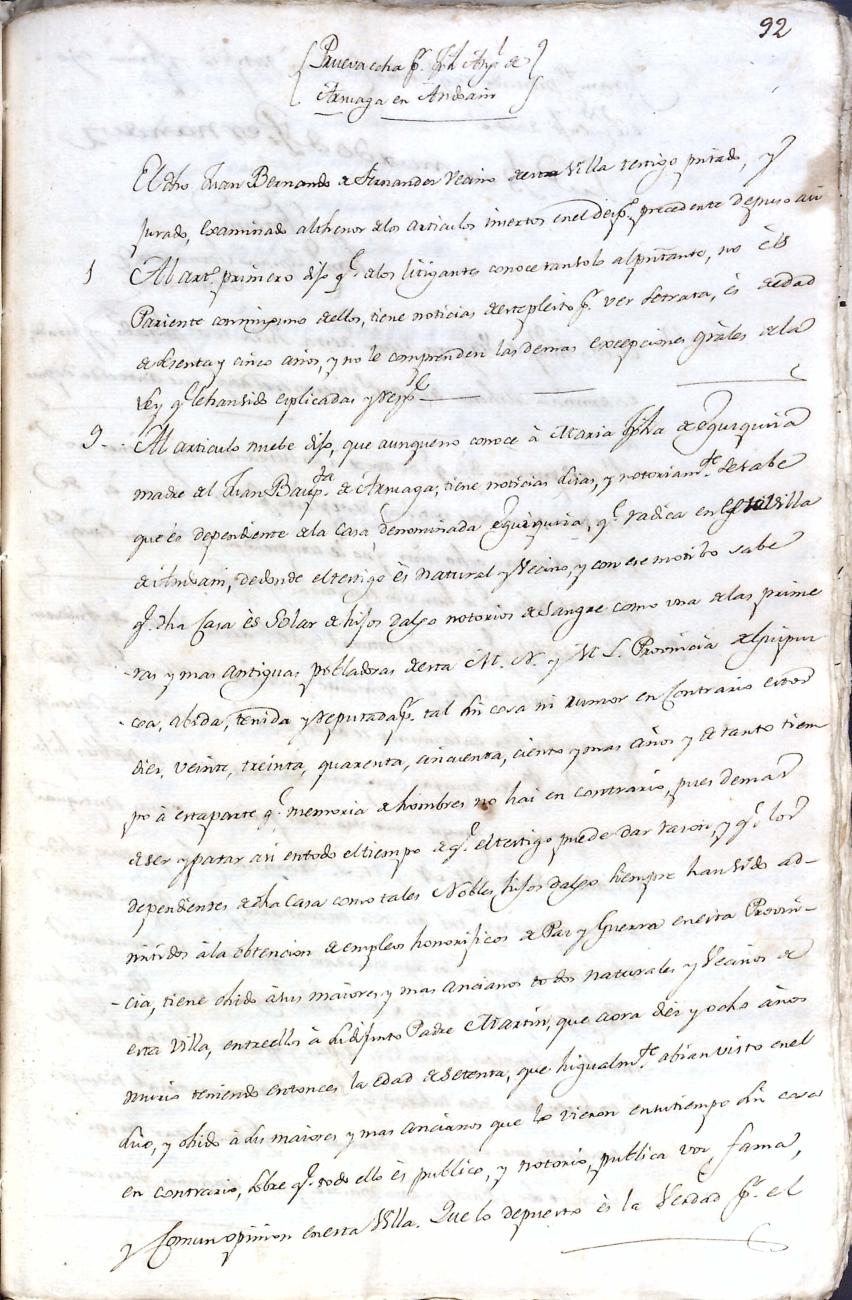 92
Prueva echa pr. Jph Anttº. de
Arruaga en Andoain
El dho Juan Bernardo de Fernandez Vecino de esta Villa testigo pntado, y
jurado, examinado al thenor de los articulos insertos en el precedente depuso asi
1 Al artº. primero dijo qe. de los litigantes conoce tan solo al pntante, no es
Pariente con ninguno de ellos, tiene noticias de este pleito pr. ver se trata, es de edad
de sesenta y cinco años, y no le comprenden las demas excepciones grales de la
Ley qe. le han sido esplicadas y respde.
9 Al articulo nuebe dijo, que aunque no conoce à Maria Jpha de Eguzquiza
madre del Juan Baupta. de Arruaga, tiene noticias suias, y notoriamte. se sabe
que es dependiente de la Casa denominada Eguzquiza, qe. radica en esta Villa
de Andoain, de donde el testigo ès natural y Vecino, y con ese motibo sabe
qe. dha Casa ès Solar de hijos dalgo notorios de Sangre como una de las prime
-ras y mas antiguas pobladoras de esta M. N. y M. L. Provincia de Guipuz-
-coa, abida, tenida y reputada pr. tal sin cosa ni rumor en contrario estos
diez, veinte, treinta, quarenta, cinquenta, ciento y mas años y de tanto tiem
po à esta parte qe. memoria de hombres no hai en contrario, pues demas
de ser y pasar asi en todo el tiempo de qe. el testigo puede dar razon, y qe. los
dependientes de dha Casa como tales Nobles hijos dalgo siempre han sido ad-
mitidos à la obtencion de empleos honorificos de Paz y Guerra en esta Provin-
-cia, tiene ohido à sus maiores y mas ancianos todos naturales y Vecinos de
esta Villa, entre ellos à su difunto Padre Martin, que aora diez y ocho años
murio teniendo entonces la edad de setenta, que higualmte. abian visto en el
suio, y ohido à sus maiores y mas ancianos que lo vieron en su tiempo sin cosa
en contrario, sobre qe. todo ello ès publico, y notorio, publica voz, fama,
y Comun opinion en esta Villa. Que lo depuesto ès la Verdad pr. el